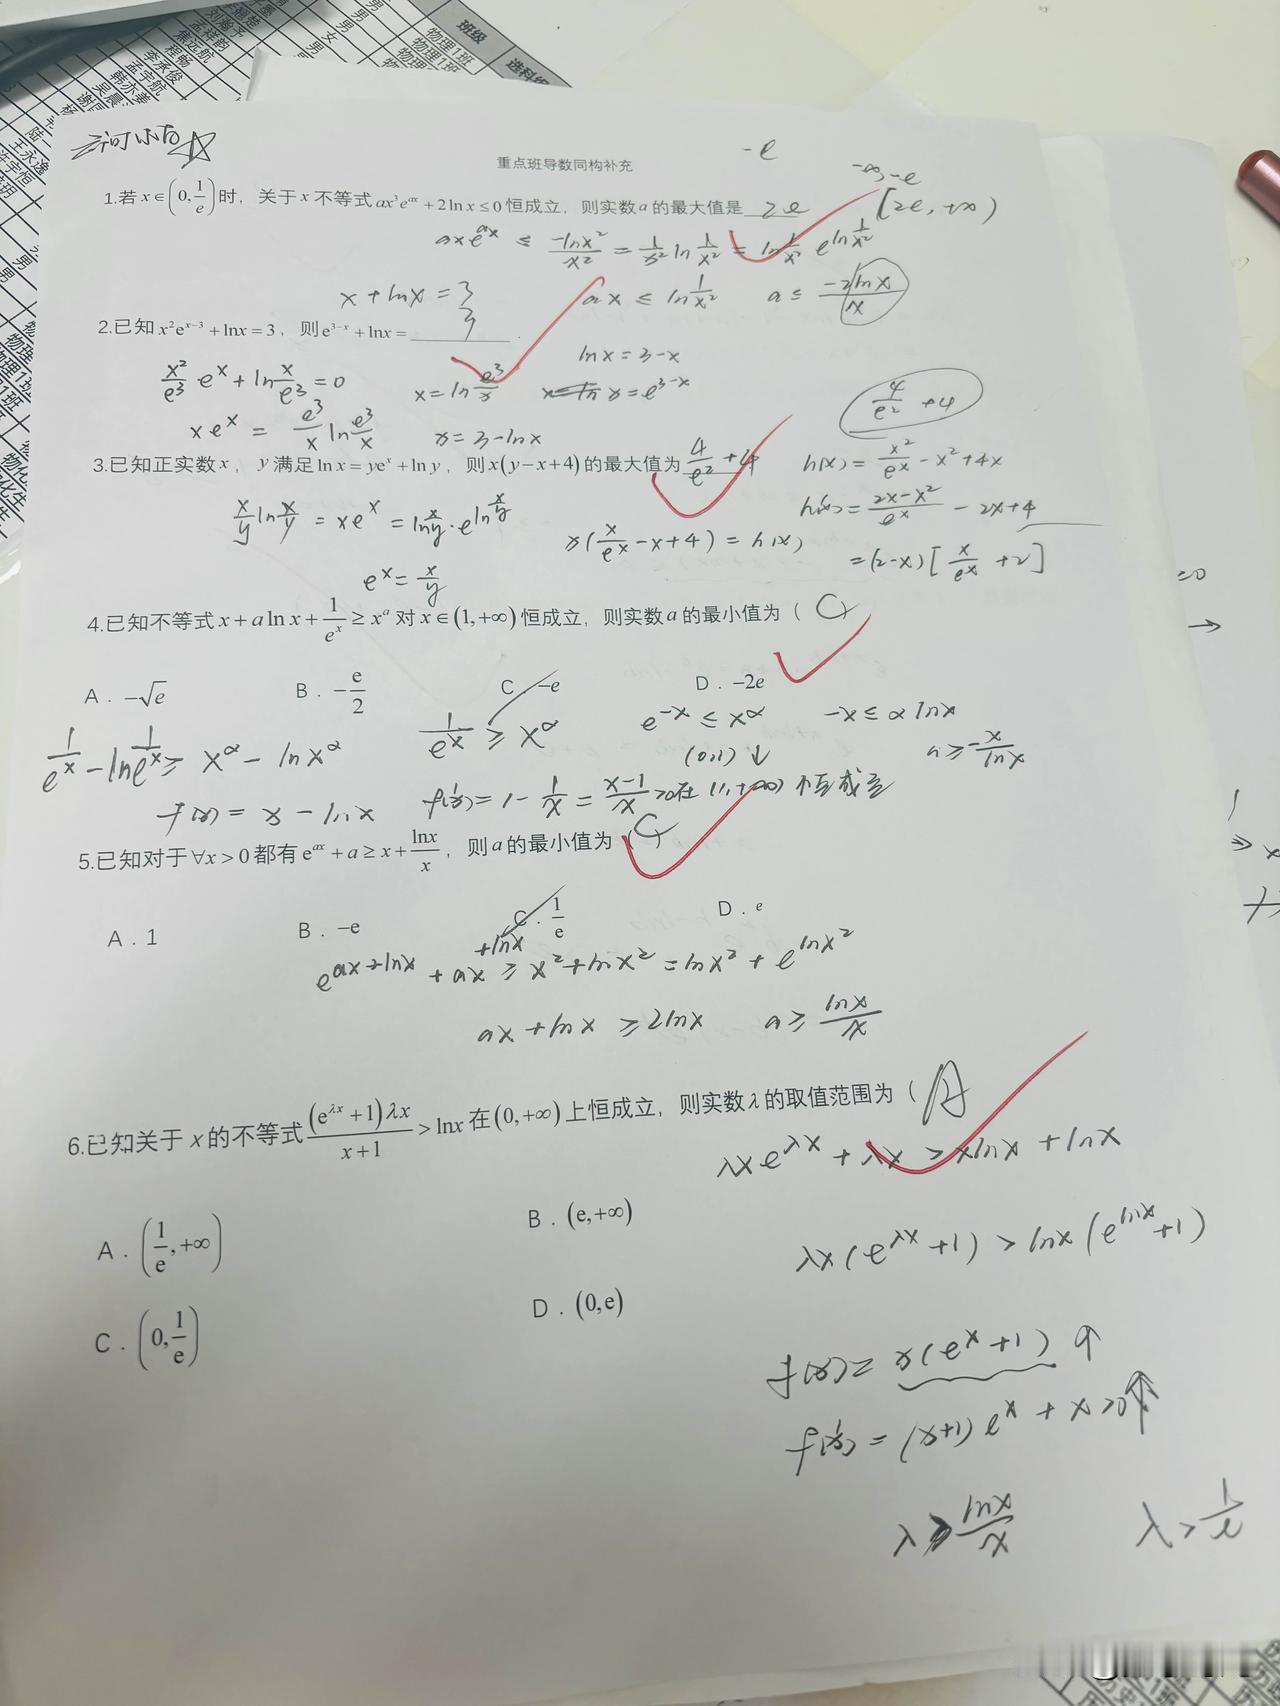 班级
选科组
物理1班
物理1班
物理1班
孟祥韵
焦远航
程畅
李承俊
孟宇航
韩亦菱
王永逸
许宇恒
重点班导数同构补充
-e
-∞,-e
1.若 x∈(0,1/e) 时，关于 x 不等式 ax³e^(ax)+2lnx≤0 恒成立，则实数 a 的最大值是 2e
[2e,+∞)
axe^(ax) ≤ -lnx²/x² = 1/x² ln 1/x² = ln 1/x² e^(ln 1/x²)
x+lnx=3
ax ≤ ln 1/x²
a≤ -2lnx/x
2.已知 x²e^(x-3)+lnx=3，则 e^(3-x)+lnx= 3 .
x²/e³·e^x+ln x/e³=0
x=ln e³/x
lnx=3-x
x=e^(3-x)
4/e²+4
xe^x = e³/x ln e³/x
x=3-lnx
3.已知正实数 x，y 满足 lnx=ye^x+lny，则 x(y-x+4) 的最大值为 4/e²+4
h(x)= x²/e^x -x²+4x
h'(x)= (2x-x²)/e^x -2x+4
x/y ln x/y = xe^x = ln x/y · e^(ln x/y)
x(x/e^x -x+4)=h(x)
=(2-x)[x/e^x +2]
e^x= x/y
4.已知不等式 x+alnx+1/e^x≥x^a 对 x∈(1,+∞) 恒成立，则实数 a 的最小值为（ C
A．-√e
B．-e/2
C．-e
D．-2e
1/e^x -ln 1/e^x ≥ x^a - lnx^a
1/e^x ≥ x^a
e^(-x) ≤ x^a
-x≤alnx
(0,1)↓
a≥-x/lnx
f(x)=x-lnx
f'(x)=1-1/x=(x-1)/x>0在(1,+∞)
5.已知对于∀x>0 都有 e^(ax)+a≥x+lnx/x，则 a 的最小值为（ C ）
A．1
B．-e
C．1/e
D．e
+lnx
e^(ax+lnx)+ax ≥ x²+lnx²=lnx²+e^(lnx²)
ax+lnx ≥2lnx
a≥ lnx/x
6.已知关于 x 的不等式 (e^(λx)+1)λx/(x+1) >lnx 在 (0,+∞) 上恒成立，则实数 λ 的取值范围为（ A
λxe^(λx)+λx >xlnx+lnx
A．(1/e,+∞)
B．(e,+∞)
λx(e^(λx)+1)>lnx(e^(lnx)+1)
C．(0,1/e)
D．(0,e)
f(x)=x(e^x+1)↑
f'(x)=(x+1)e^x+x>0↑
λ> lnx/x
λ>1/e